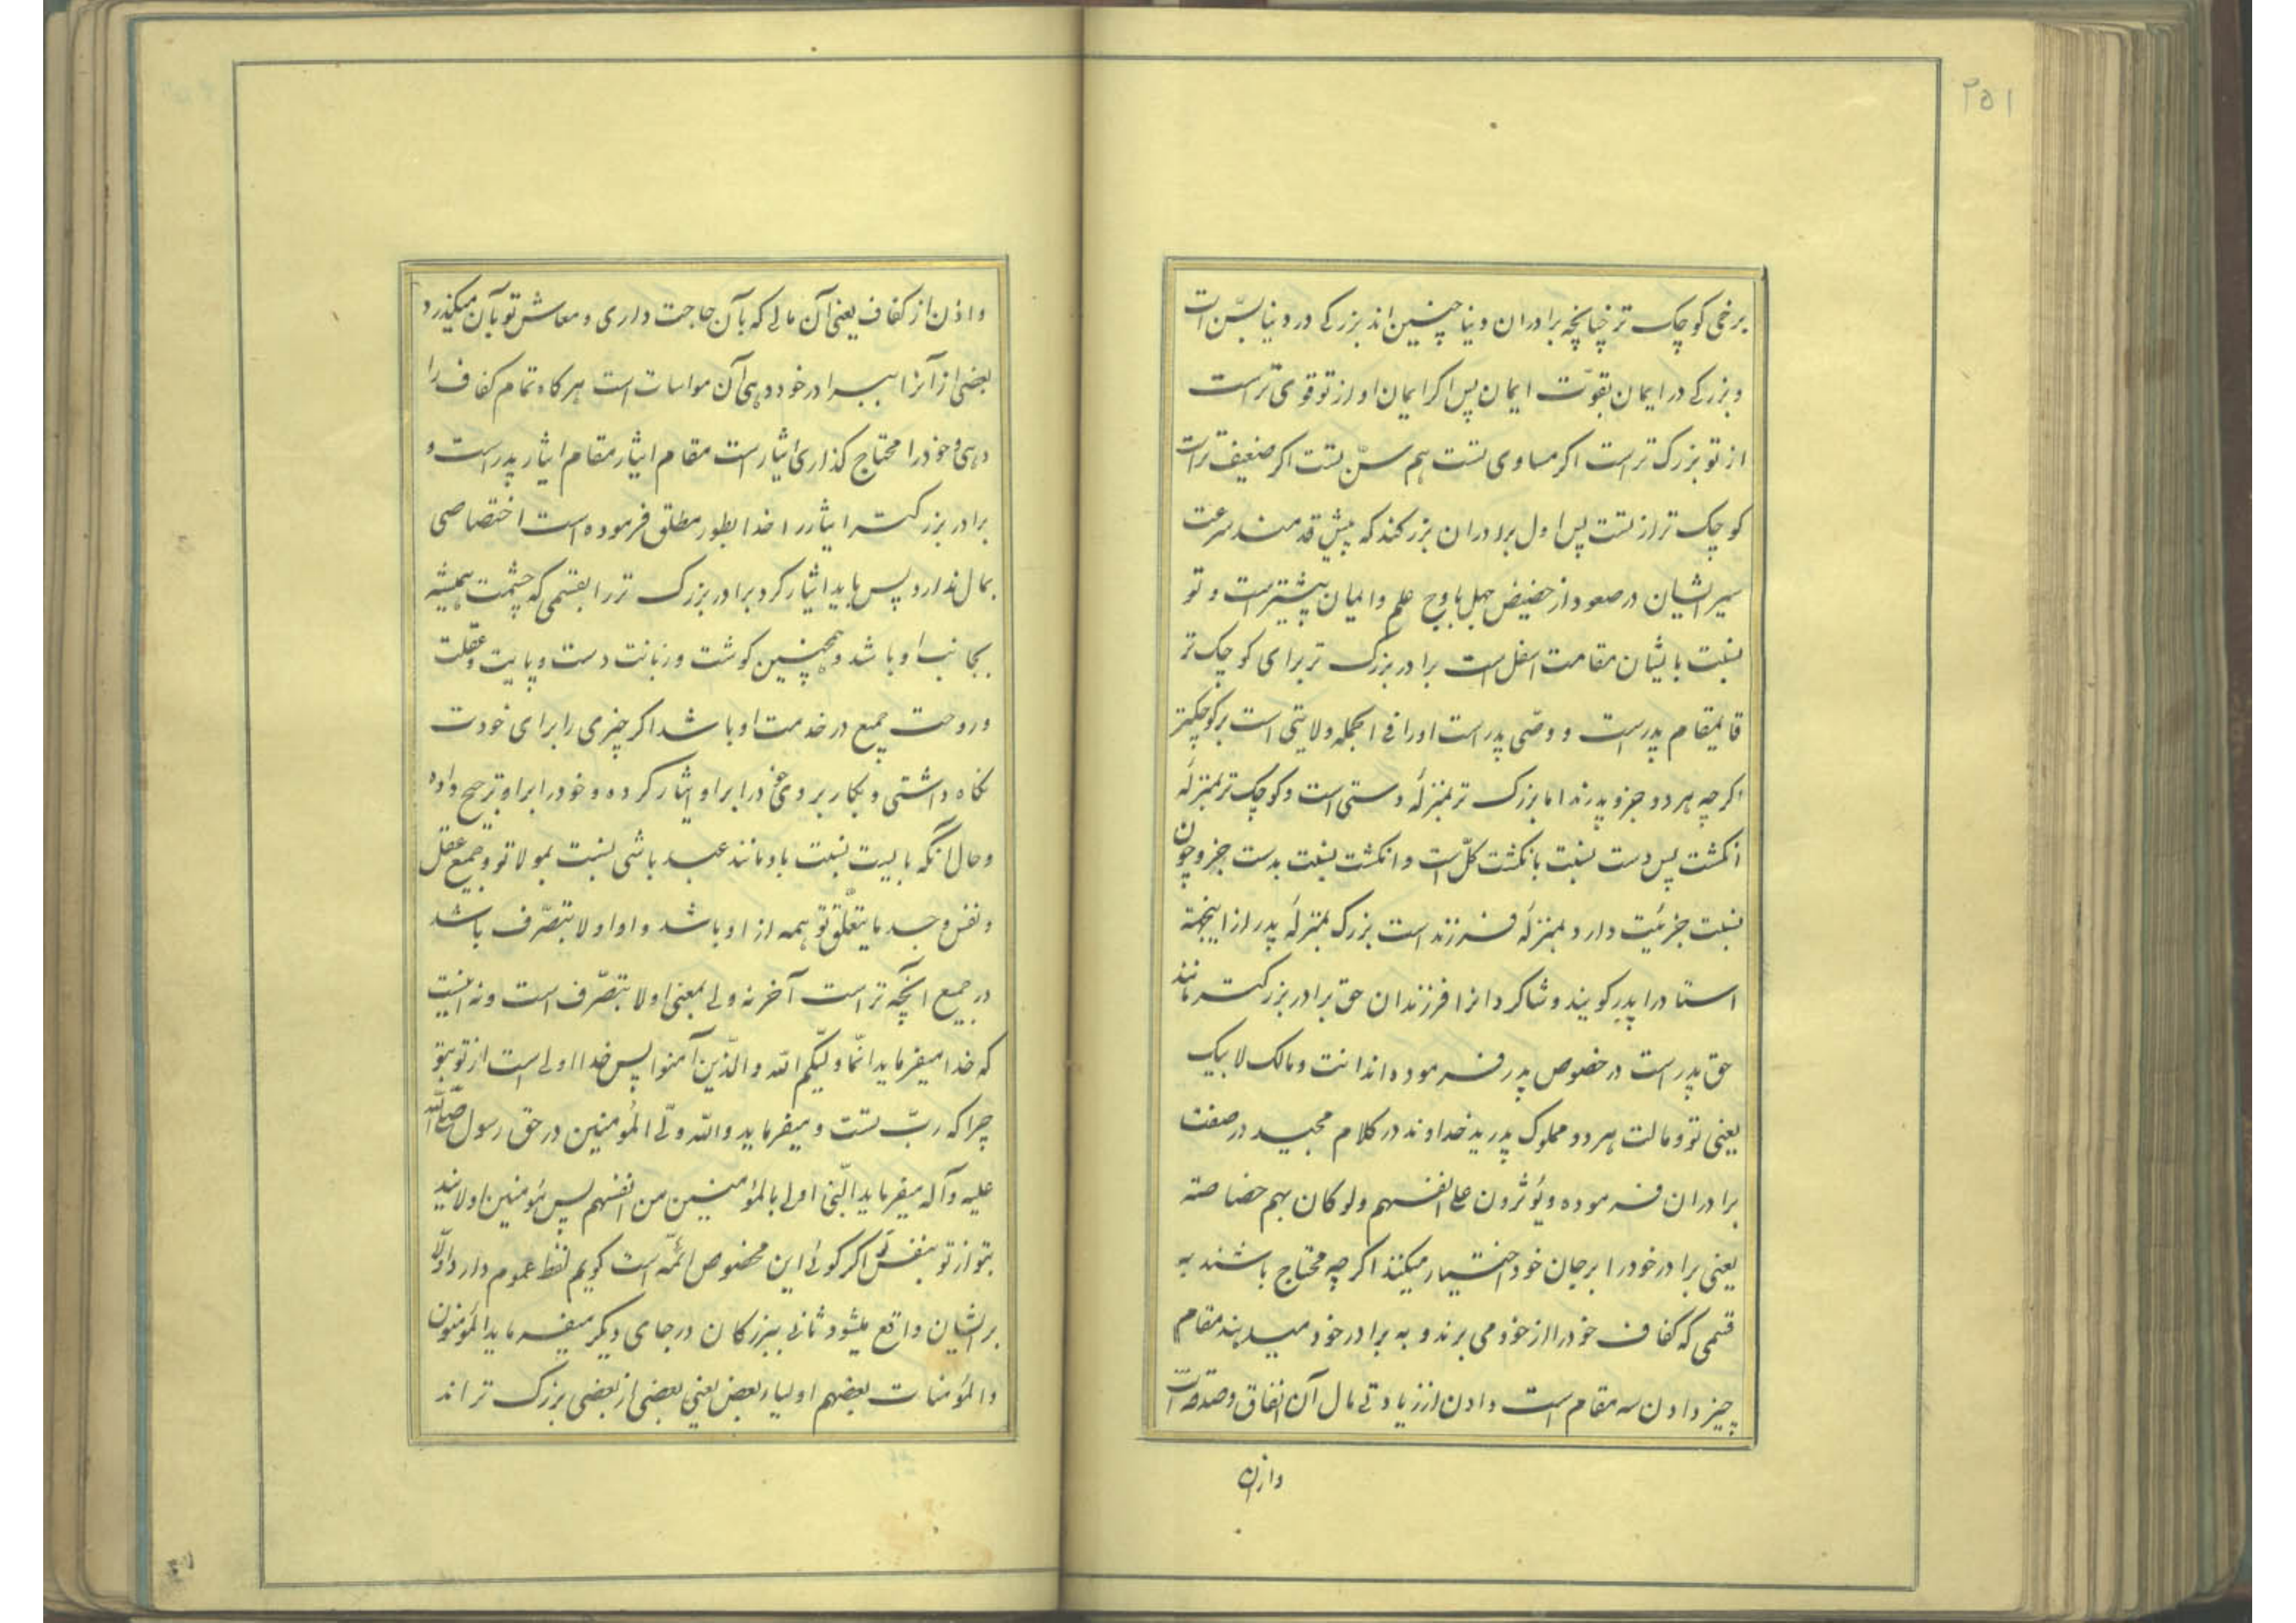 ۲۵۱
برخی کوچک تر چنانچه برادران دنیا چنین اند بزرکی در دنیا بسّن است
و بزرکی در ایمان بقوّت ایمان پس اکر ایمان او از تو قوی تر است
از تو بزرک تر است اکر مساوی تست هم سنّ تست اکر ضعیف تر است
کوچک تر از تست پس اول برادران بزرکند که پیش قدمند سرعت
سیر ایشان در صعود از حضیض جهل باوج علم و ایمان پیشتر است و تو
نسبت بایشان مقامت اسفل است برادر بزرک تر برای کوچک تر
قایمقام پدر است و وصّی پدر است او را فی الجمله ولایتی است بر کوچکتر
اکر چه هر دو جزو پدرند اما بزرک تر بمنزلهٔ دستی است و کوچک تر بمنزلهٔ
انکشت پس دست نسبت بانکشت کلّ است و انکشت نسبت بدست جزو چون
نسبت جزئیت دارد بمنزلهٔ فرزند است بزرک بمنزلهٔ پدر از اینجهة
استاد را پدر کویند و شاکردانرا فرزندان حق برادر بزرکتر مانند
حق پدر است در خصوص پدر فرموده اند انت و مالک لابیک
یعنی تو و مالت هر دو مملوک پدرید خداوند در کلام مجید در صفت
برادران فرموده و یؤثرون علی انفسهم ولو کان بهم خصاصة
یعنی برادر خود را بر جان خود اختیار میکنند اکر چه محتاج باشند به
قسمی که کفاف خود را از خود می برند و به برادر خود میدهند مقام
چیز دادن سه مقام است دادن از زیادتی مال آن انفاق و صدقه است
دادن
و ادن از کفاف یعنی آن مالی که بآن حاجت داری و معاش تو بآن میکذرد
بعضی از آنرا ببرادر خود دهی آن مواسات است هرکاه تمام کفاف را
دهی و خود را محتاج کذاری ایثار است مقام ایثار مقام ایثار پدر است و
برادر بزرکتر ایثار را خدا بطور مطلق فرموده است اختصاصی
بمال ندارد پس باید ایثار کرد برادر بزرک تر را بقسمی که چشمت همیشه
بجانب او باشد و همچنین کوشت و زبانت دست و پایت و عقلت
و روحت جمیع در خدمت او باشد اکر چیزی را برای خودت
نکاه داشتی و بکار بردی خود را بر او ایثار کرده و خود را بر او ترجیح داده
و حال آنکه بایست نسبت باو مانند عبد باشی نسبت بمولا تو و جمیع عقل
و نفس و جسد ما یتعلّق تو همه از او باشد و او اولا بتصرّف باشد
در جمیع آنچه تراست آخر نه ولی بمعنی اولا بتصّرف است و نه اینست
که خدا میفرماید انّما ولیّکم الله و الّذین آمنوا پس خدا اولی است از تو بتو
چرا که ربّ تست و میفرماید و الله ولّی المؤمنین در حق رسول صلّی الله
علیه و آله میفرماید النّبی اولی بالمؤمنین من انفسهم پس مؤمنین اولایند
بتو از تو بنفس تو اکر کوئی این مخصوص ائمّه است کویم لفظ عموم دارد اوّلا
بر ایشان واقع میشود ثانی ببزرکان در جای دیکر میفرماید المؤمنون
و المؤمنات بعضهم اولیاء بعض یعنی بعضی از بعضی بزرک تر اند